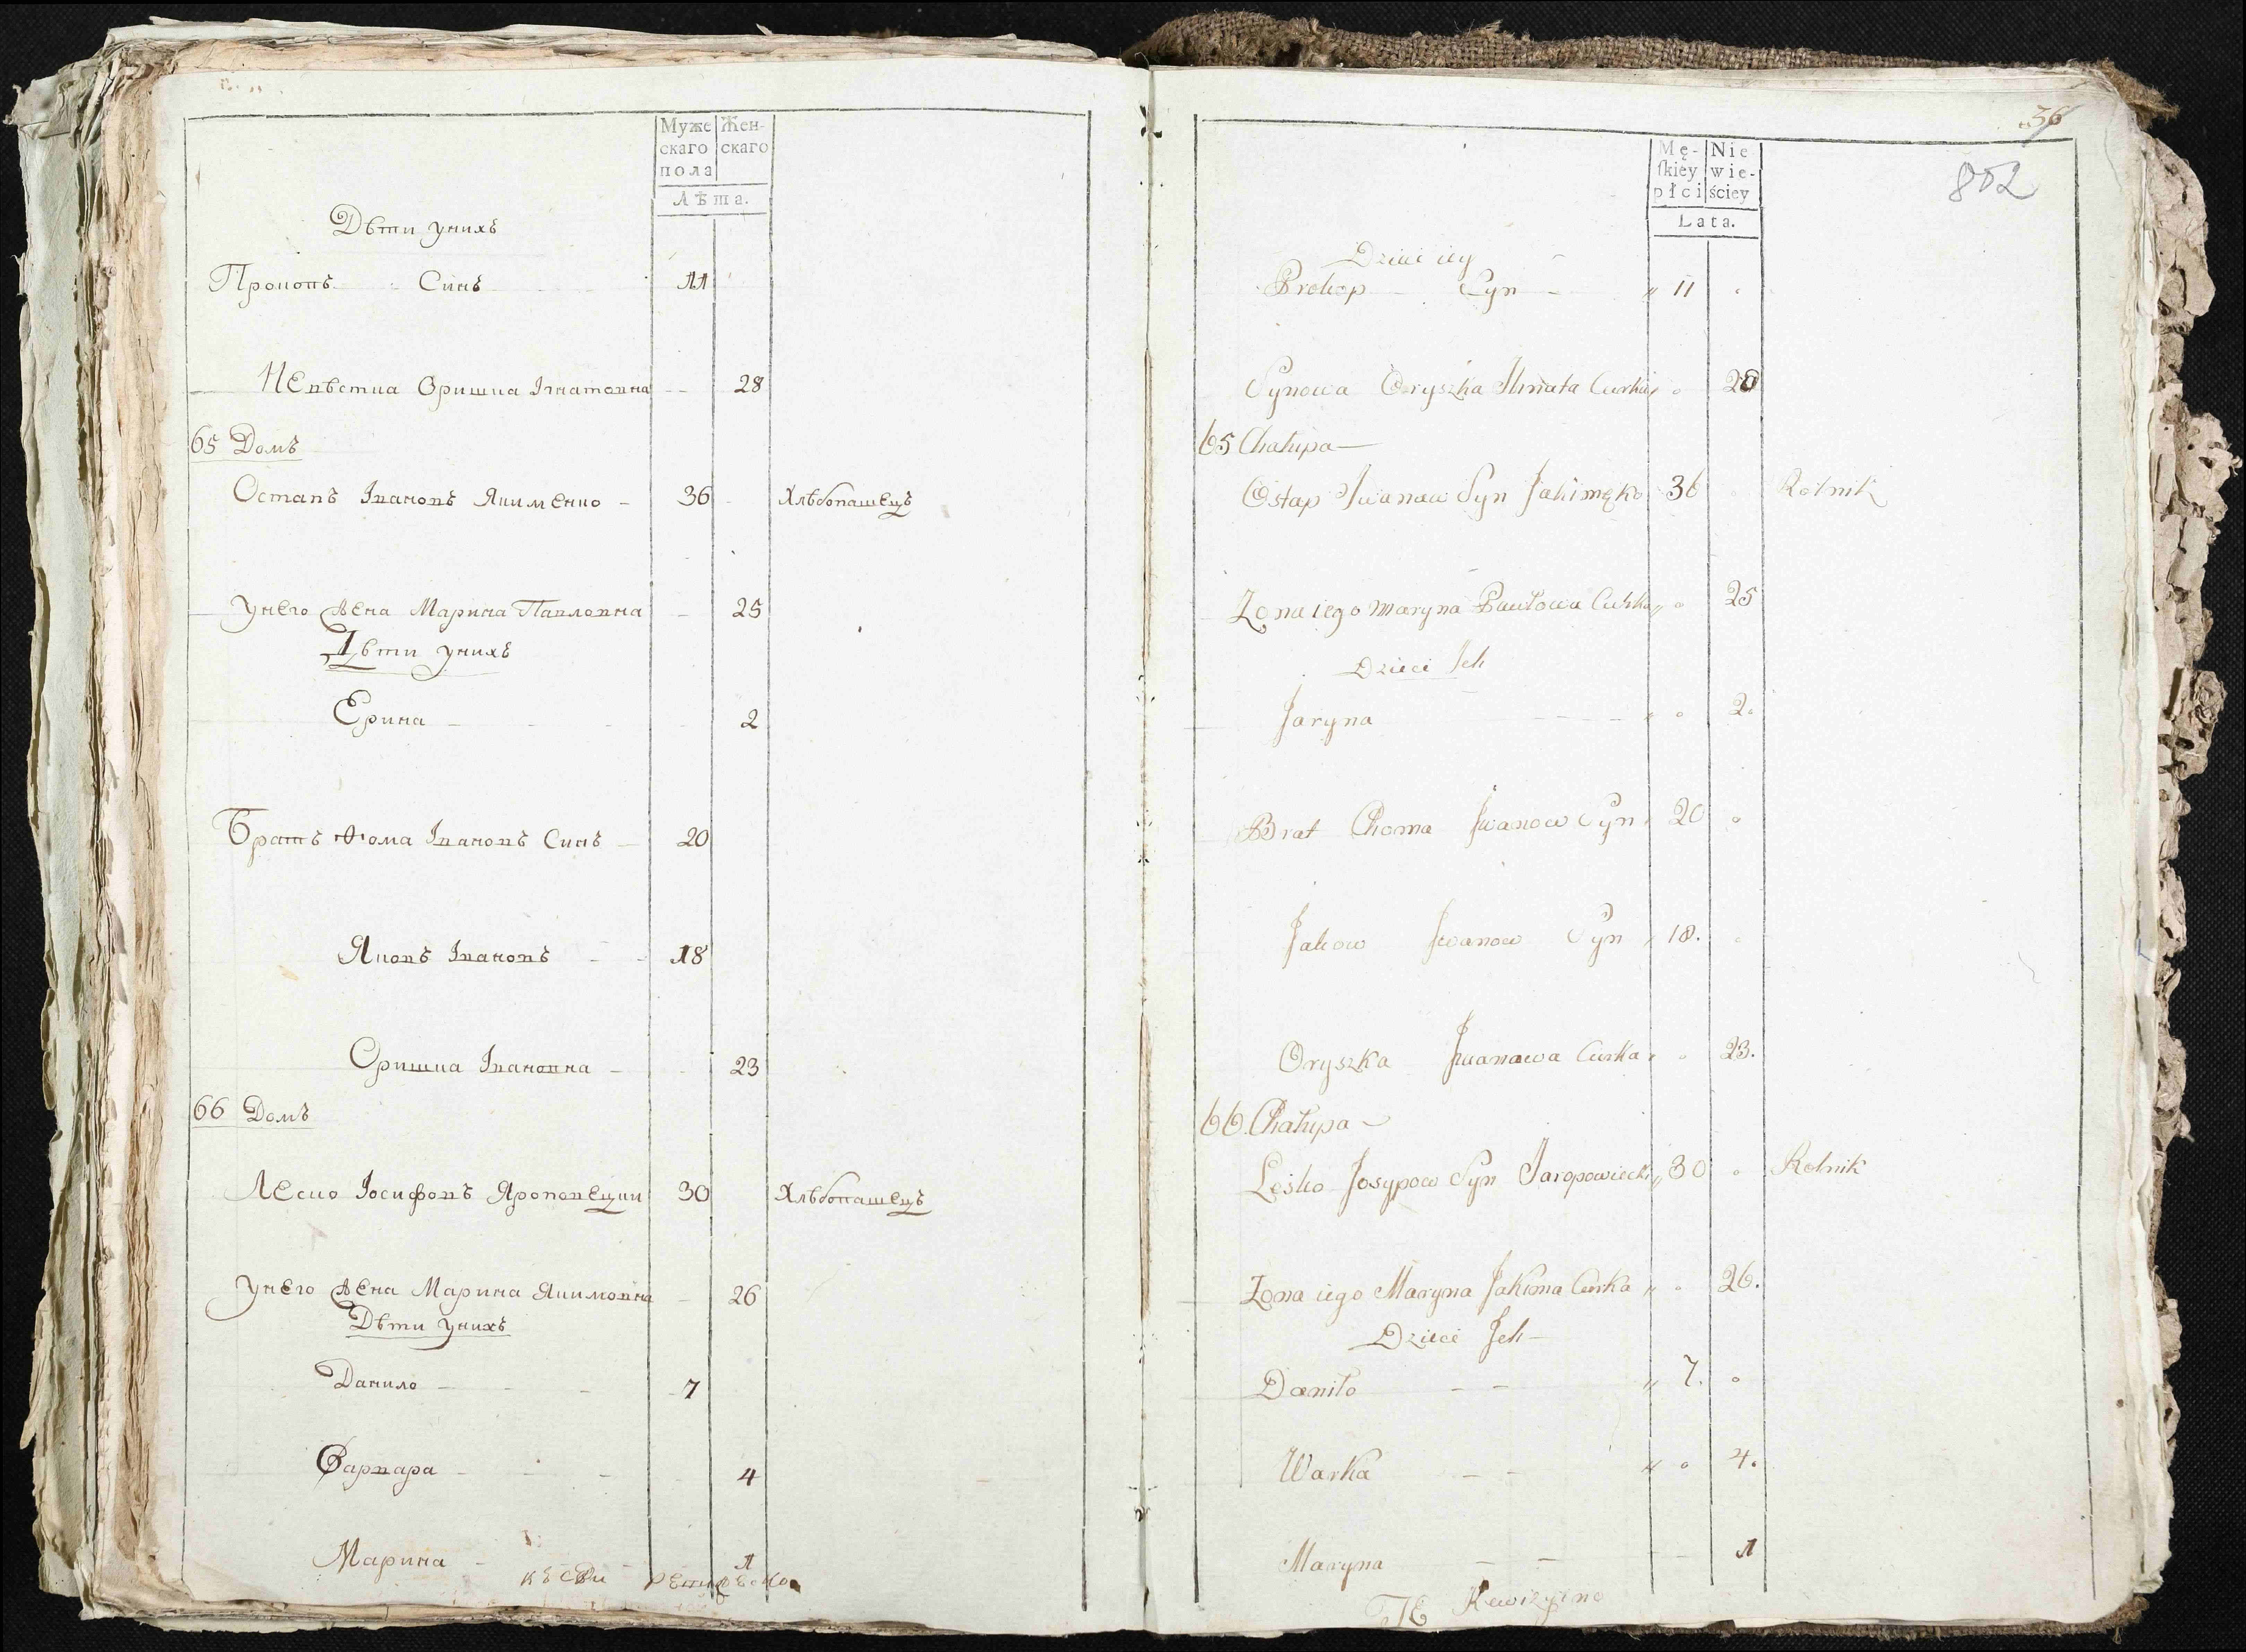 Муже Жен-
скаго скаго
пола
Лѣта.
Дѣти унихъ
Прокопъ Синъ 11
Невѣстка Оришка Ігнатовна 28
65 Домъ
Остапъ Івановъ Якименко - 36 Хлѣбопашецъ
Унего жена Марина Павловна 25
Дѣти унихъ
Ерина 2
Братъ Ѳома Івановъ Синъ 20
Яковъ Івановъ 18
Оришка Івановна 23
66 Домъ
Леско Іосифовъ Яроповецки 30 Хлѣбопашецъ
Унего жена Марина Якимовна 26
Дѣти унихъ
Данило 7
Варвара 4
Марина 1
36
802
Mę- Nie
ſkiey wie-
płci ściey
Lata.
Dzieci iey
Prokop Syn 11
Synowa Oryszka Curka 28
65 Chałupa
Ostap Iwanow Syn Jakimęko 36 Rolnik
Zona iego Maryna Pawłowa Curka 25
Dzieci Ich
Jaryna 2.
Brat Choma Iwanow Syn 20
Jakow Iwanow Syn 18.
Oryszka Iwanowa Curka 23.
66. Chałupa
Leśko Josypow Syn Jaropowiecki 30 Rolnik
Zona iego Maryna Jakima Curka 26.
Dzieci Ich
Daniło 7.
Warka 4.
Maryna 1